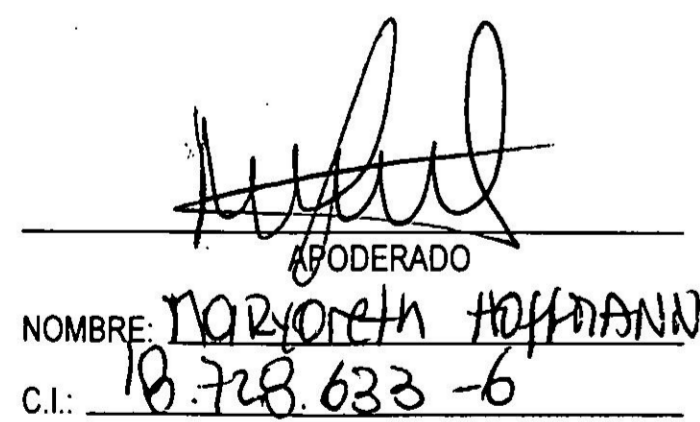 APODERADO
NOMBRE: MARYORETH HOFFMANN
C.I.: 18.728.633-6